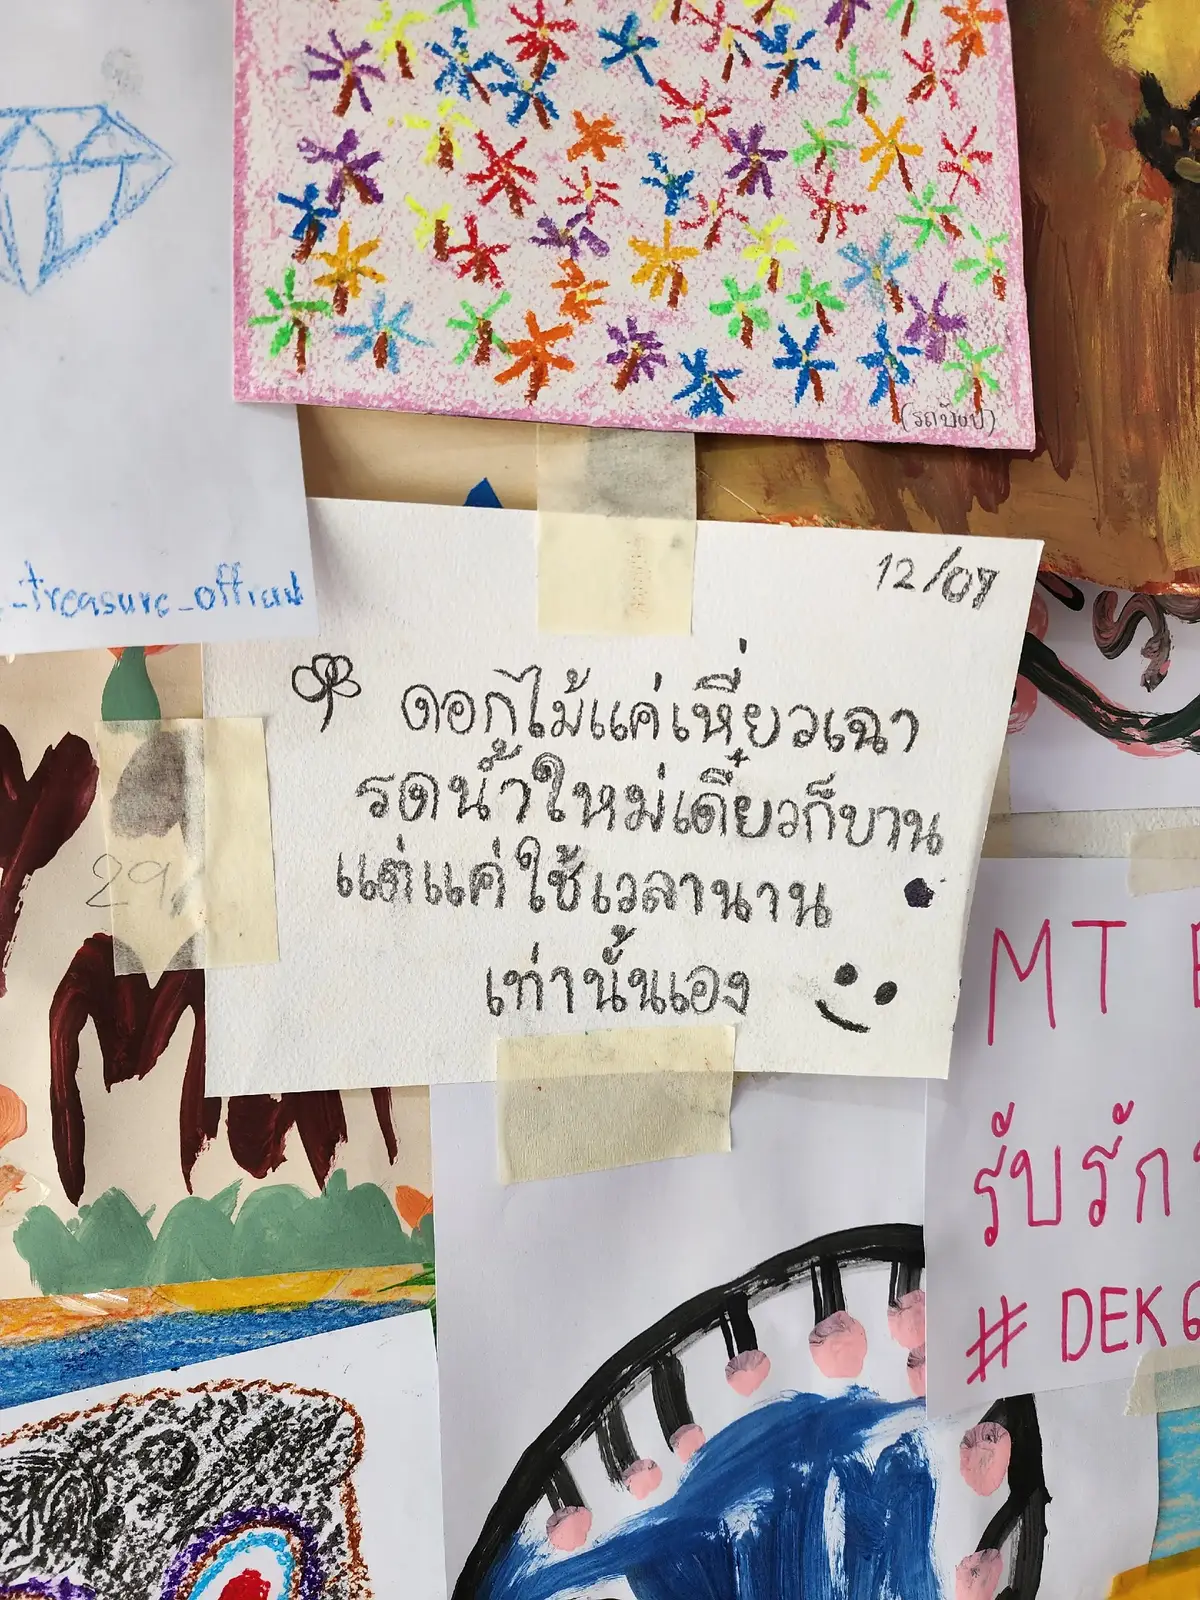 (รถบัสป)
_treasure_official
12/07
ดอกไม้แค่เหี่ยวเฉา
รดน้ำใหม่เดี๋ยวก็บาน
แต่แค่ใช้เวลานาน
เท่านั้นเอง
29
MT
รับรัก
# DEK